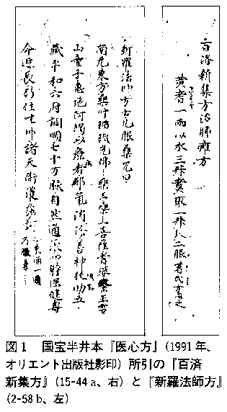 百済新集方治肺癰方
黄耆一両以水三升煮取一升分二服
新羅法師方云凡服藥咒曰
南无東方藥師瑠璃光佛藥王藥上菩薩耆婆醫王雪
山童子惠施阿竭以療病者邪氣消除善神扶助五
藏平和六府調順七十万脉自然通張四體強健壽
命延長行住坐卧諸天衛護莎訶 向東誦一遍乃服藥
図1　国宝半井本『医心方』（1991年、
オリエント出版社影印）所引の『百済
新集方』（15-44 a、右）と『新羅法師方』
（2-58 b、左）